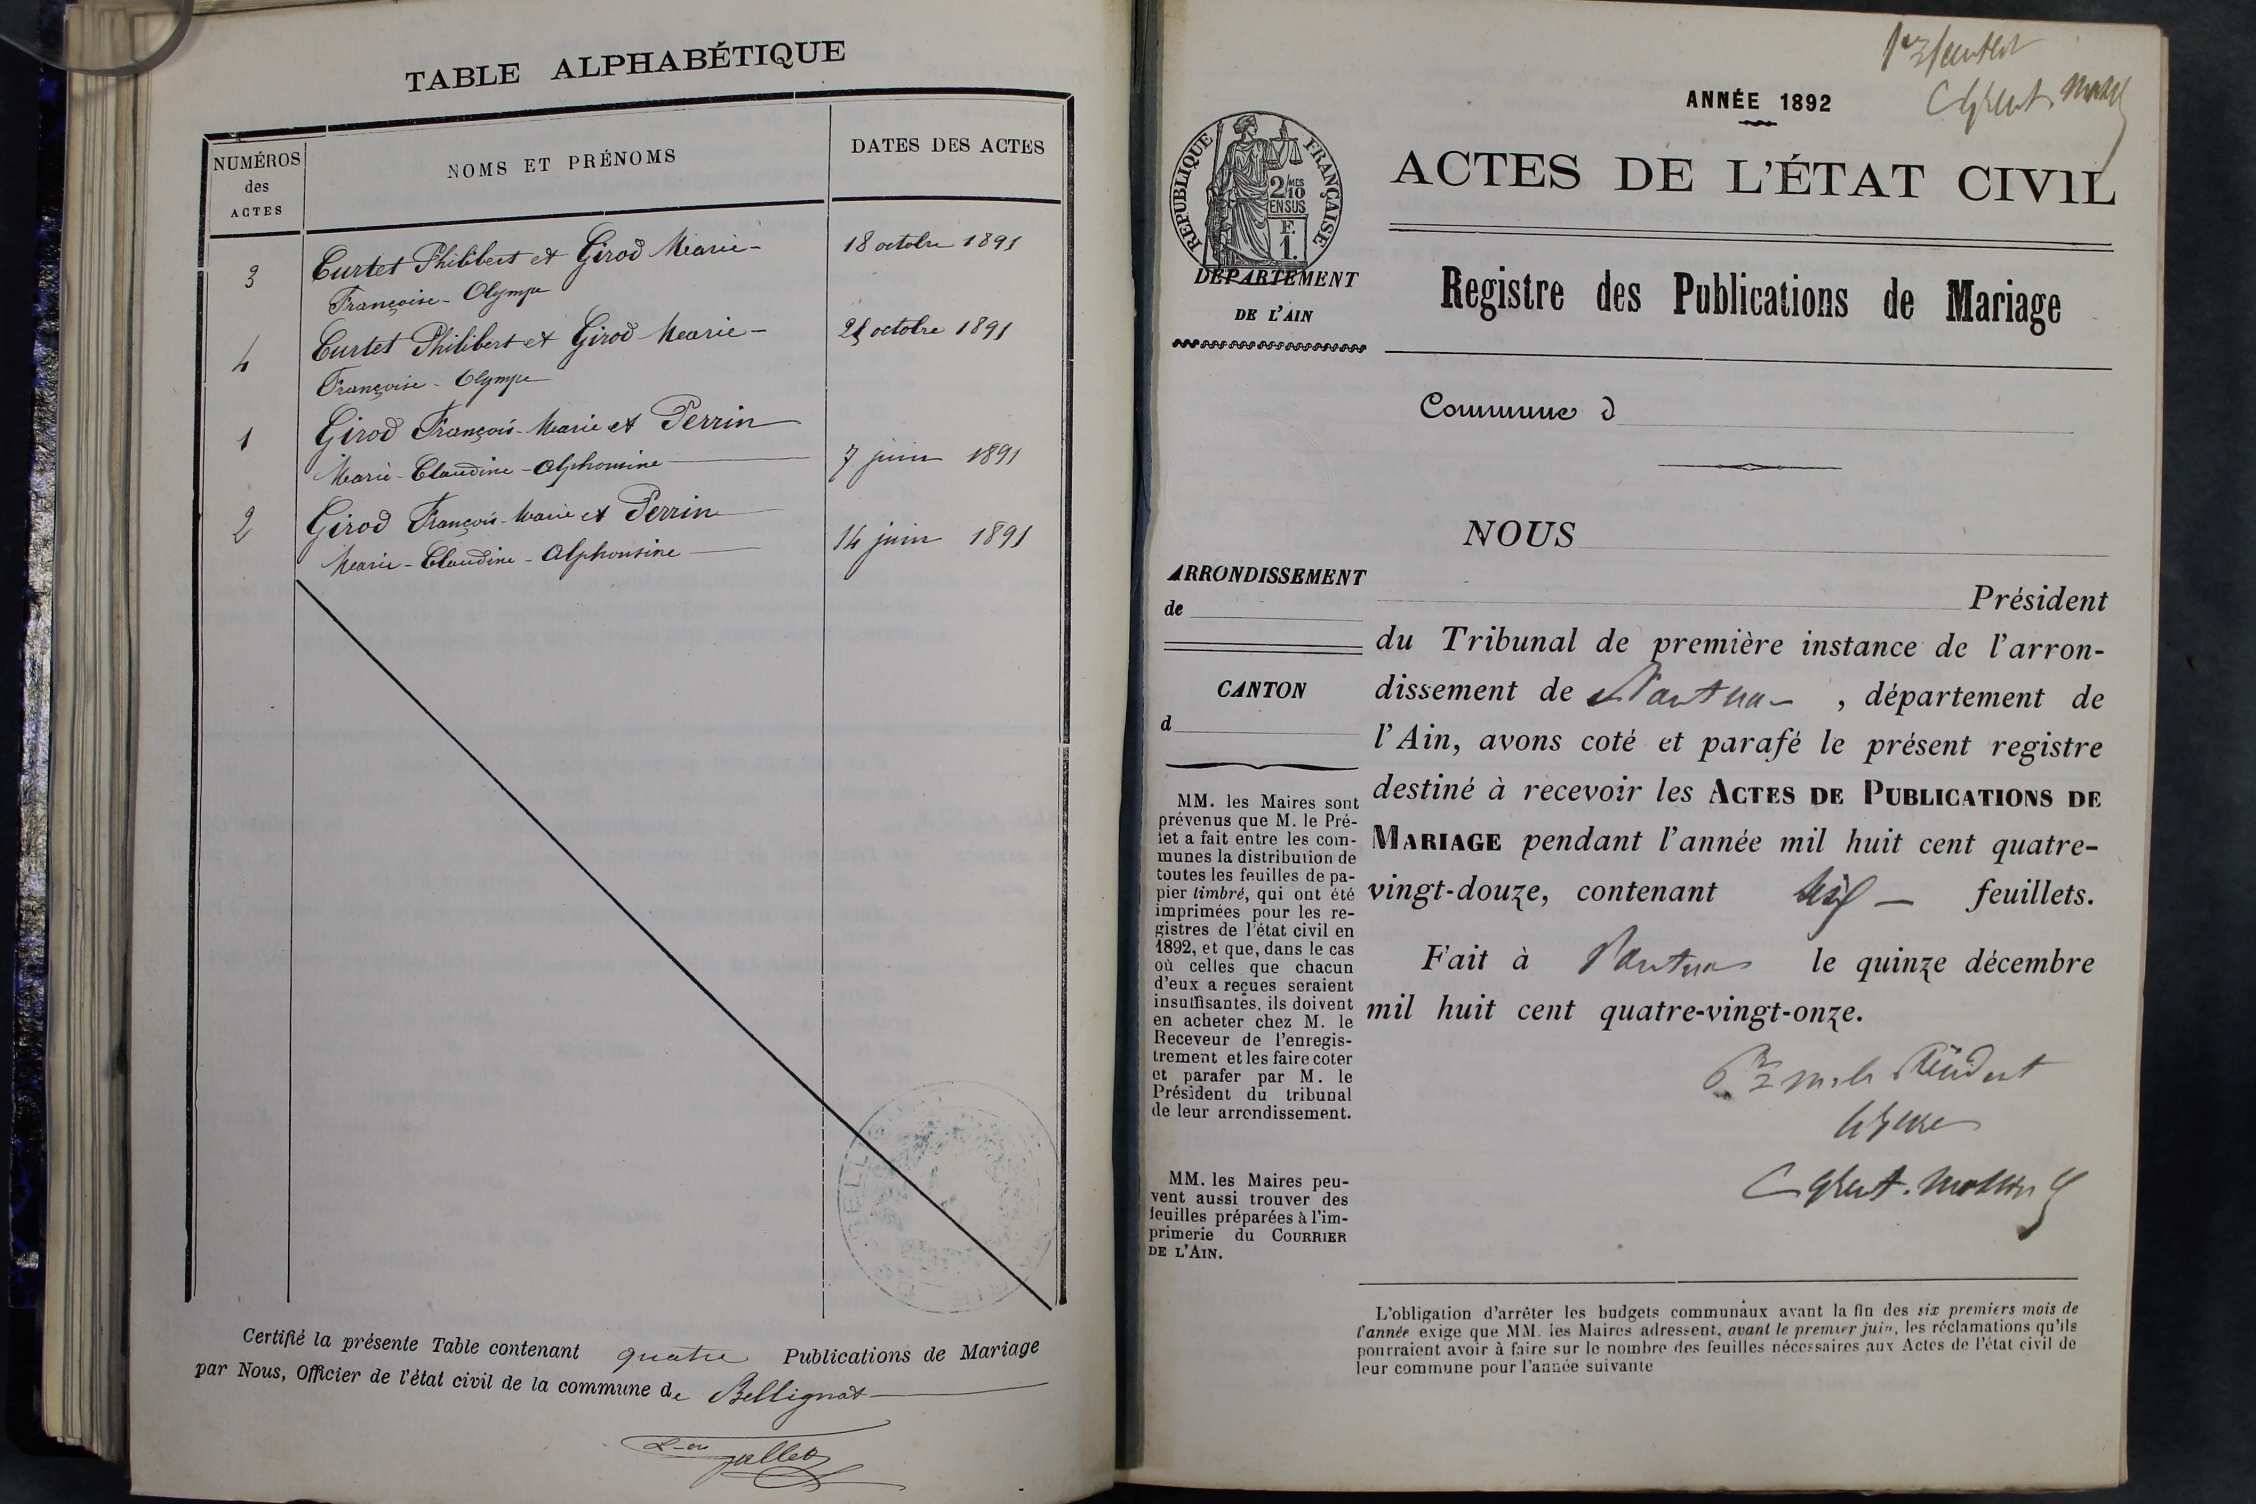 TABLE ALPHABÉTIQUE
NUMÉROS
des
ACTES
NOMS ET PRÉNOMS
DATES DES ACTES
3 Curtet Philibert et Girod Marie- 18 octobre 1891
Françoise - Olympe
4 Curtet Philibert et Girod Marie- octobre 1891
Françoise - Olympe
1 Girod François-Marie et Perrin
Marie-Claudine-Alphonsine 7 juin 1891
2 Girod François-Marie et Perrin
Marie-Claudine-Alphonsine 14 juin 1891
Certifié la présente Table contenant quatre Publications de Mariage
par Nous, Officier de l'état civil de la commune de Bellignat
1er feuillet
ANNÉE 1892
ACTES DE L'ÉTAT CIVIL
RÉPUBLIQUE FRANÇAISE
2/10MES
EN SUS
F.
1.
DÉPARTEMENT
DE L'AIN
Registre des Publications de Mariage
Commune d
NOUS
ARRONDISSEMENT
de
Président
du Tribunal de première instance de l'arron-
dissement de Nantua , département de
l'Ain, avons coté et parafé le présent registre
destiné à recevoir les ACTES DE PUBLICATIONS DE
MARIAGE pendant l'année mil huit cent quatre-
vingt-douze, contenant feuillets.
Fait à Nantua le quinze décembre
mil huit cent quatre-vingt-onze.
CANTON
d
MM. les Maires sont
prévenus que M. le Pré-
fet a fait entre les com-
munes la distribution de
toutes les feuilles de pa-
pier timbré, qui ont été
imprimées pour les re-
gistres de l'état civil en
1892, et que, dans le cas
où celles que chacun
d'eux a reçues seraient
insuffisantes, ils doivent
en acheter chez M. le
Receveur de l'enregis-
trement et les faire coter
et parafer par M. le
Président du tribunal
de leur arrondissement.
MM. les Maires peu-
vent aussi trouver des
feuilles préparées à l'im-
primerie du COURRIER
DE L'AIN.
L'obligation d'arrêter les budgets communaux avant la fin des six premiers mois de
l'année exige que MM. les Maires adressent, avant le premier juin, les réclamations qu'ils
pourraient avoir à faire sur le nombre des feuilles nécessaires aux Actes de l'état civil de
leur commune pour l'année suivante